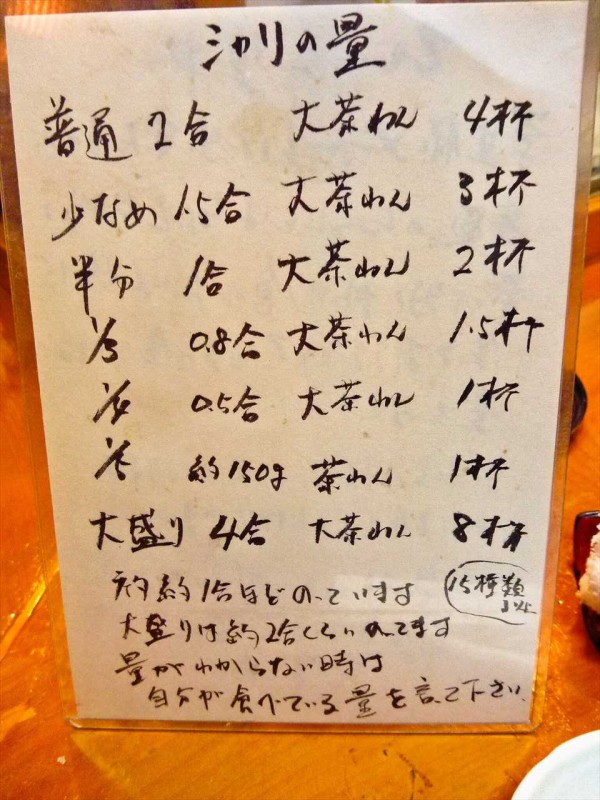 シャリの量
普通 2合 大茶わん 4杯
少なめ 1.5合 大茶わん 3杯
半分 1合 大茶わん 2杯
1/3 0.8合 大茶わん 1.5杯
1/4 0.5合 大茶わん 1杯
1/5 約150g 茶わん 1杯
大盛り 4合 大茶わん 8杯
約1合ほどのっています
15種類以上
大盛りは約2合くらいのってます
量がわからない時は
自分が食べている量を言って下さい